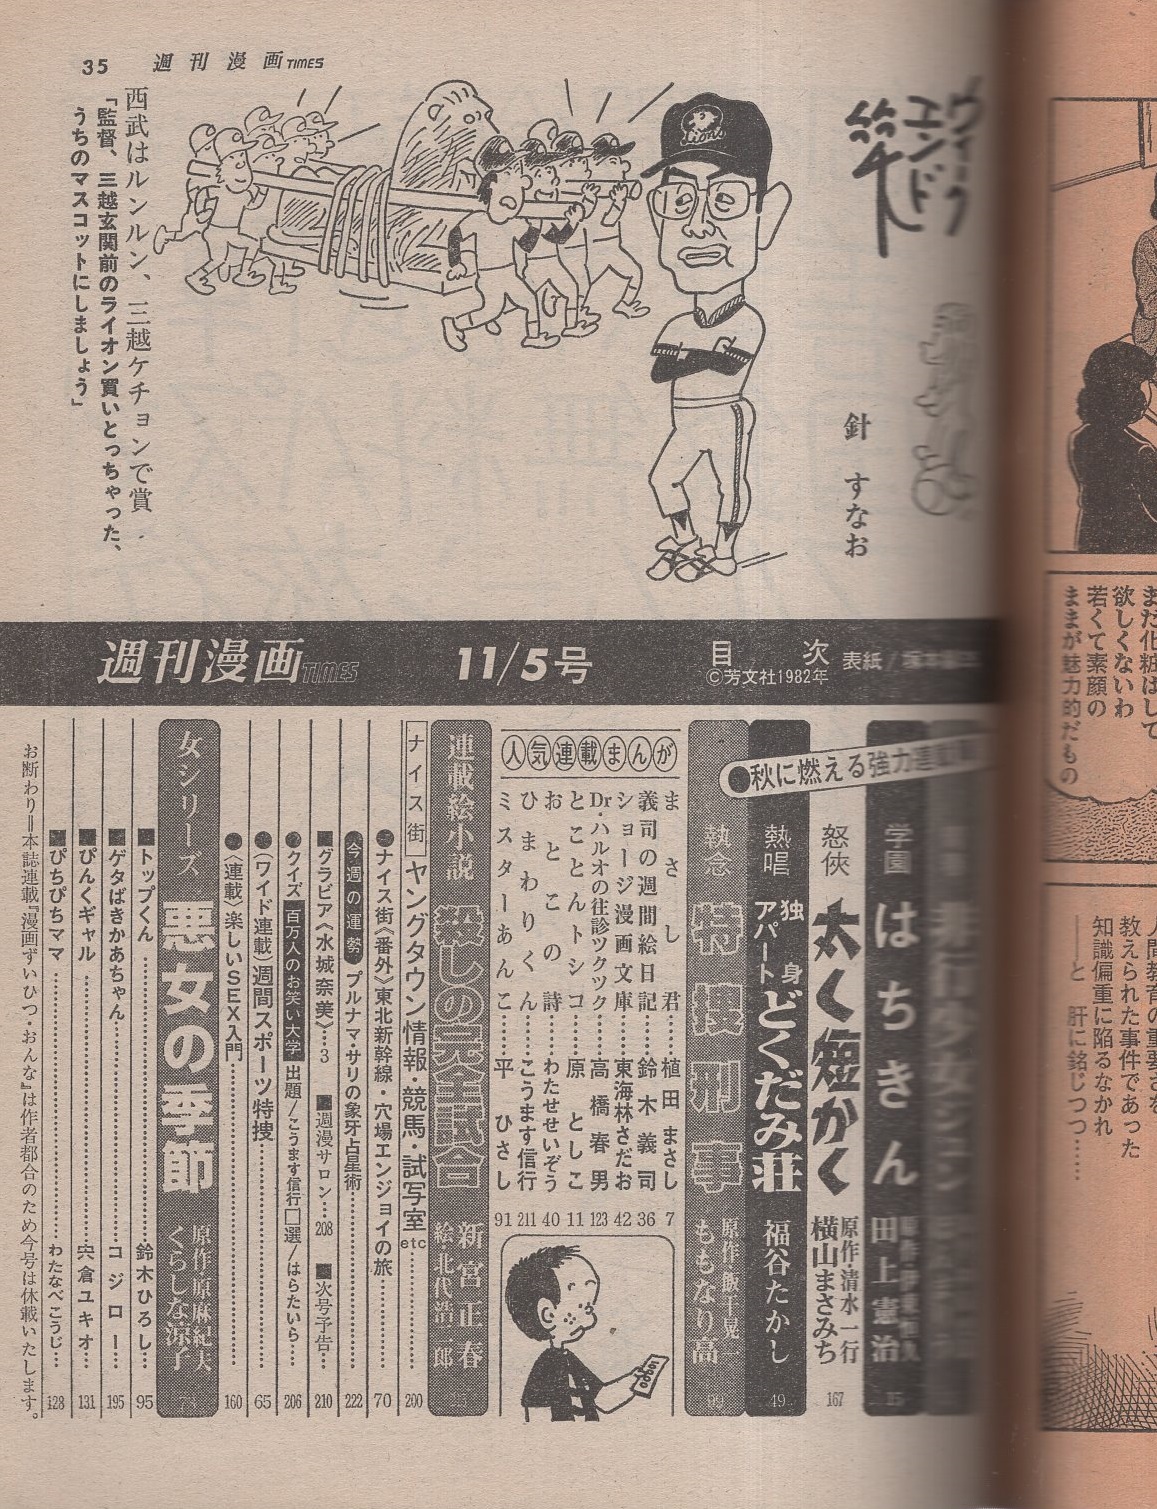 35 週刊漫画TIMES
ウィークエンド
針 すなお
Lions
西武はルンルン、三越ケチョンで賞
「監督、三越玄関前のライオン買いとっちゃった、
うちのマスコットにしましょう」
週刊漫画TIMES 11/5号 目次
©芳文社1982年
表紙/
●秋に燃える強力連載
学園 はちきん 田上憲治 15
怒侠 太く短かく 原作・清水一行 横山まさみち 167
熱唱 独身アパートどくだみ荘 福谷たかし 49
執念 特捜刑事 原作・飯干晃一 ももなり高 99
人気連載まんが
まさし君……植田まさし 7
義司の週間絵日記……鈴木義司 36
ショージ漫画文庫……東海林さだお 42
Dr・ハルオの往診ツクツク……高橋春男 123
とことんトシコ……原としこ 11
おとこの詩……わたせせいぞう 40
ひまわりくん……こうます信行 211
ミスターあんこ……平ひさし 91
連載絵小説 殺しの完全試合 新宮正春 絵・北代浩二郎
ナイス街 ヤングタウン情報・競馬・試写室etc……200
●ナイス街〈番外〉東北新幹線・穴場エンジョイの旅……70
今週の運勢 プルナマ・サリの象牙占星術……222
■グラビア〈水城奈美〉…3 ■週漫サロン…208 ■次号予告…210
●クイズ 百万人のお笑い大学 出題/こうます信行 選/はらたいら…206
●〈ワイド連載〉週間スポーツ特捜……65
●〈連載〉楽しいSEX入門……160
女シリーズ 悪女の季節 原作・原麻紀夫 くらしな涼子
■トップくん……鈴木ひろし…95
■ゲタばきかあちゃん……コジロー…195
■ぴんくギャル……宍倉ユキオ…131
■ぴちぴちママ……わたなべこうじ…128
お断わり＝本誌連載『漫画ずいひつ・おんな』は作者都合のため今号は休載いたします。
まだ化粧はして
欲しくないわ
若くて素顔の
ままが魅力的だもの
人間教育の重要さを
教えられた事件であった
知識偏重に陥るなかれ
――と 肝に銘じつつ……